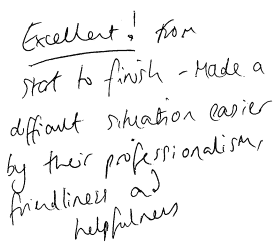 Excellent! from
start to finish - Made a
difficult situation easier
by their professionalism,
friendliness and
helpfulness